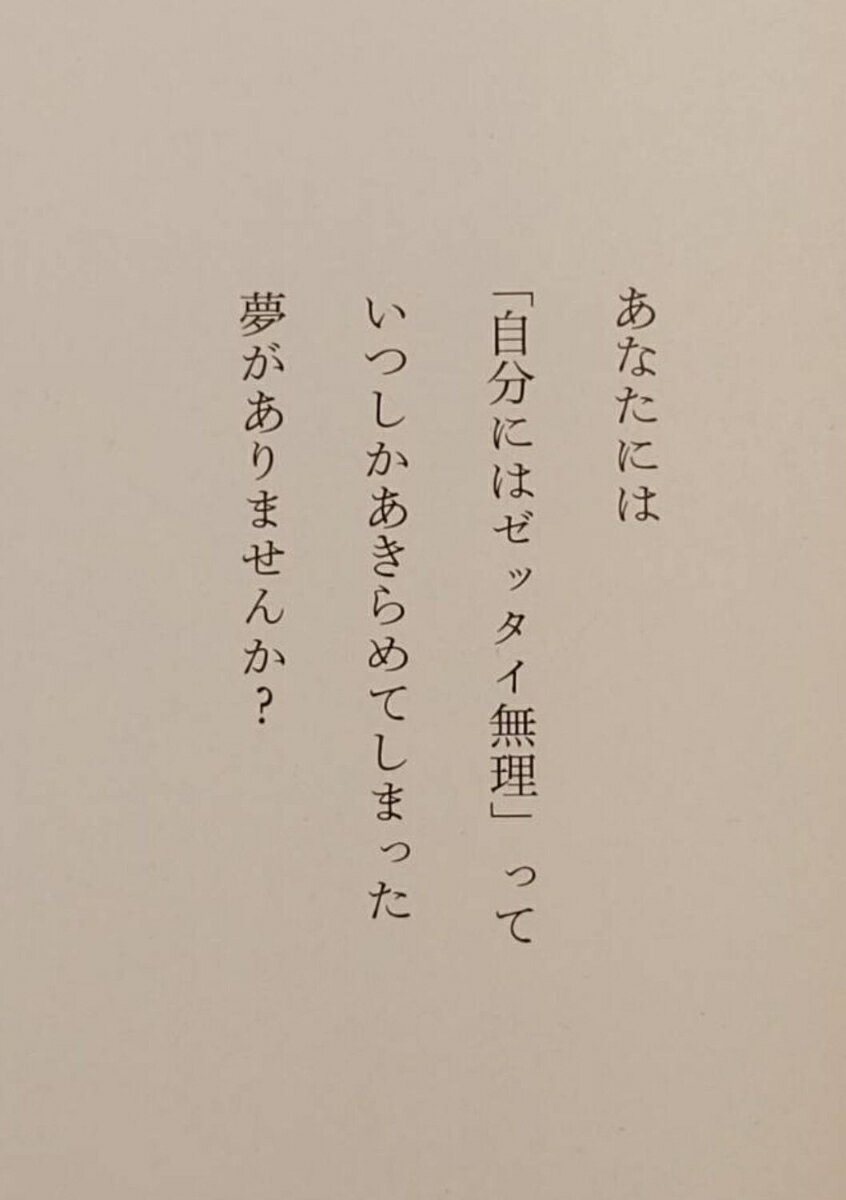 あなたには
「自分にはゼッタイ無理」って
いつしかあきらめてしまった
夢がありませんか？